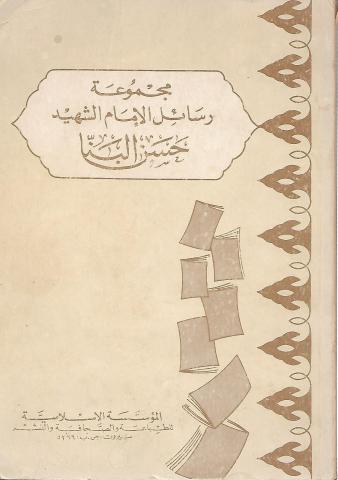 مجموعة
رسائل الإمام الشهيد
حسن البنا
المؤسسة الإسلامية
للطباعة والصحافة والنشر
بيروت ص.ب